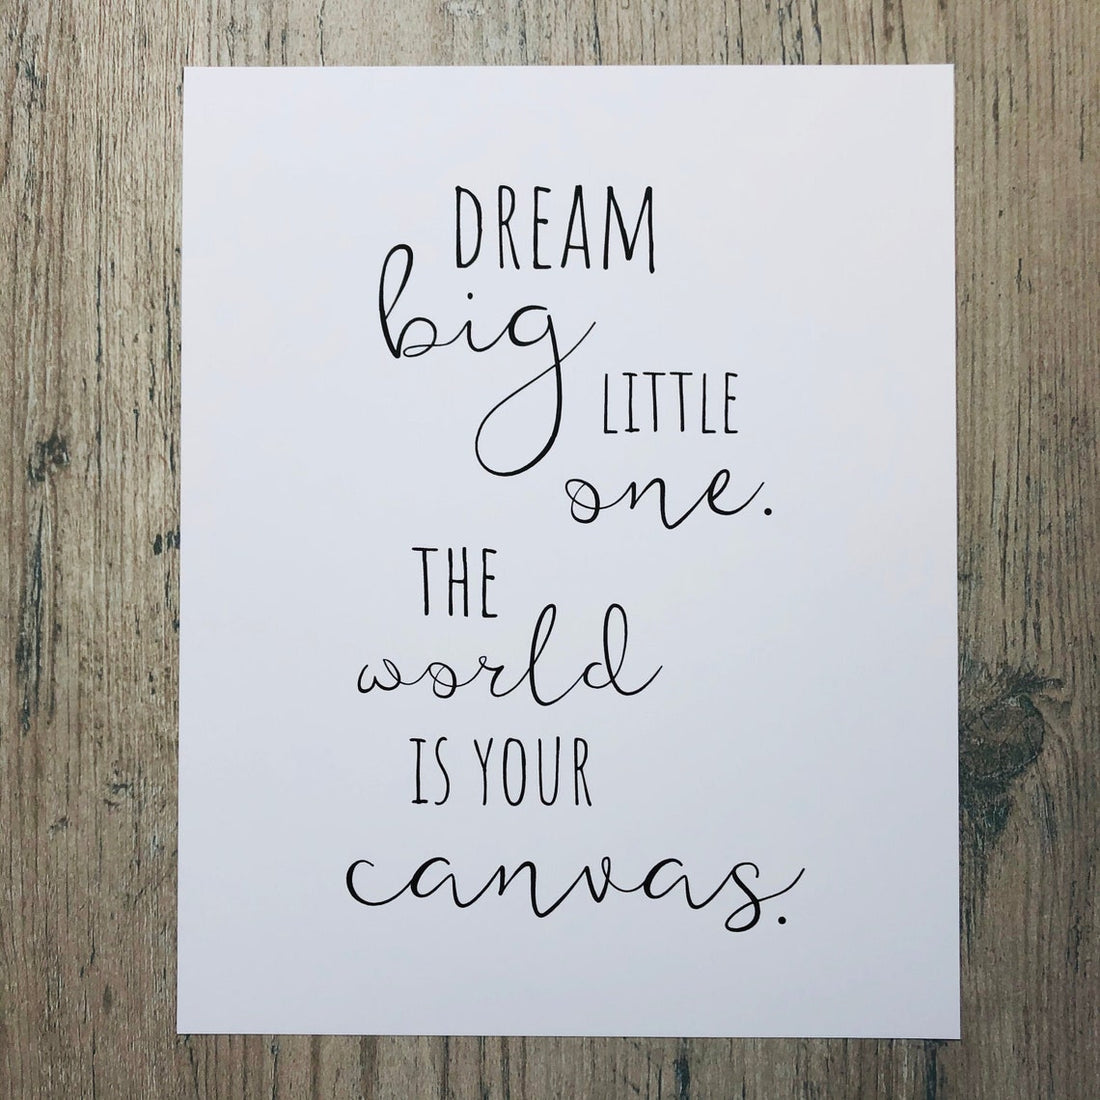 DREAM
big
LITTLE
one.
THE
world
IS YOUR
canvas.